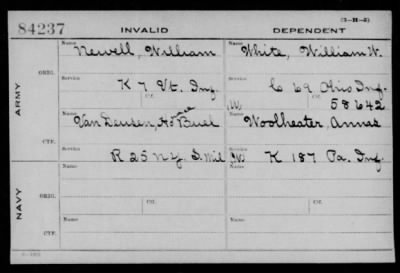 (3-H-5)
84237 INVALID DEPENDENT
Name Newell, William Name White, William W.
ORIG. Service K 7 Vt. Inf. Service C 69 Ohio Inf.
ARMY Ctf. (W) Ctf. 58642
Name Van Deusen, Buel Name Woolheater, Annas
CTF. Service R 25 N.Y. S. Mil Service (W) K 187 Pa. Inf.
Name Name
ORIG. Ctf. Ctf.
NAVY
Name Name
CTF.